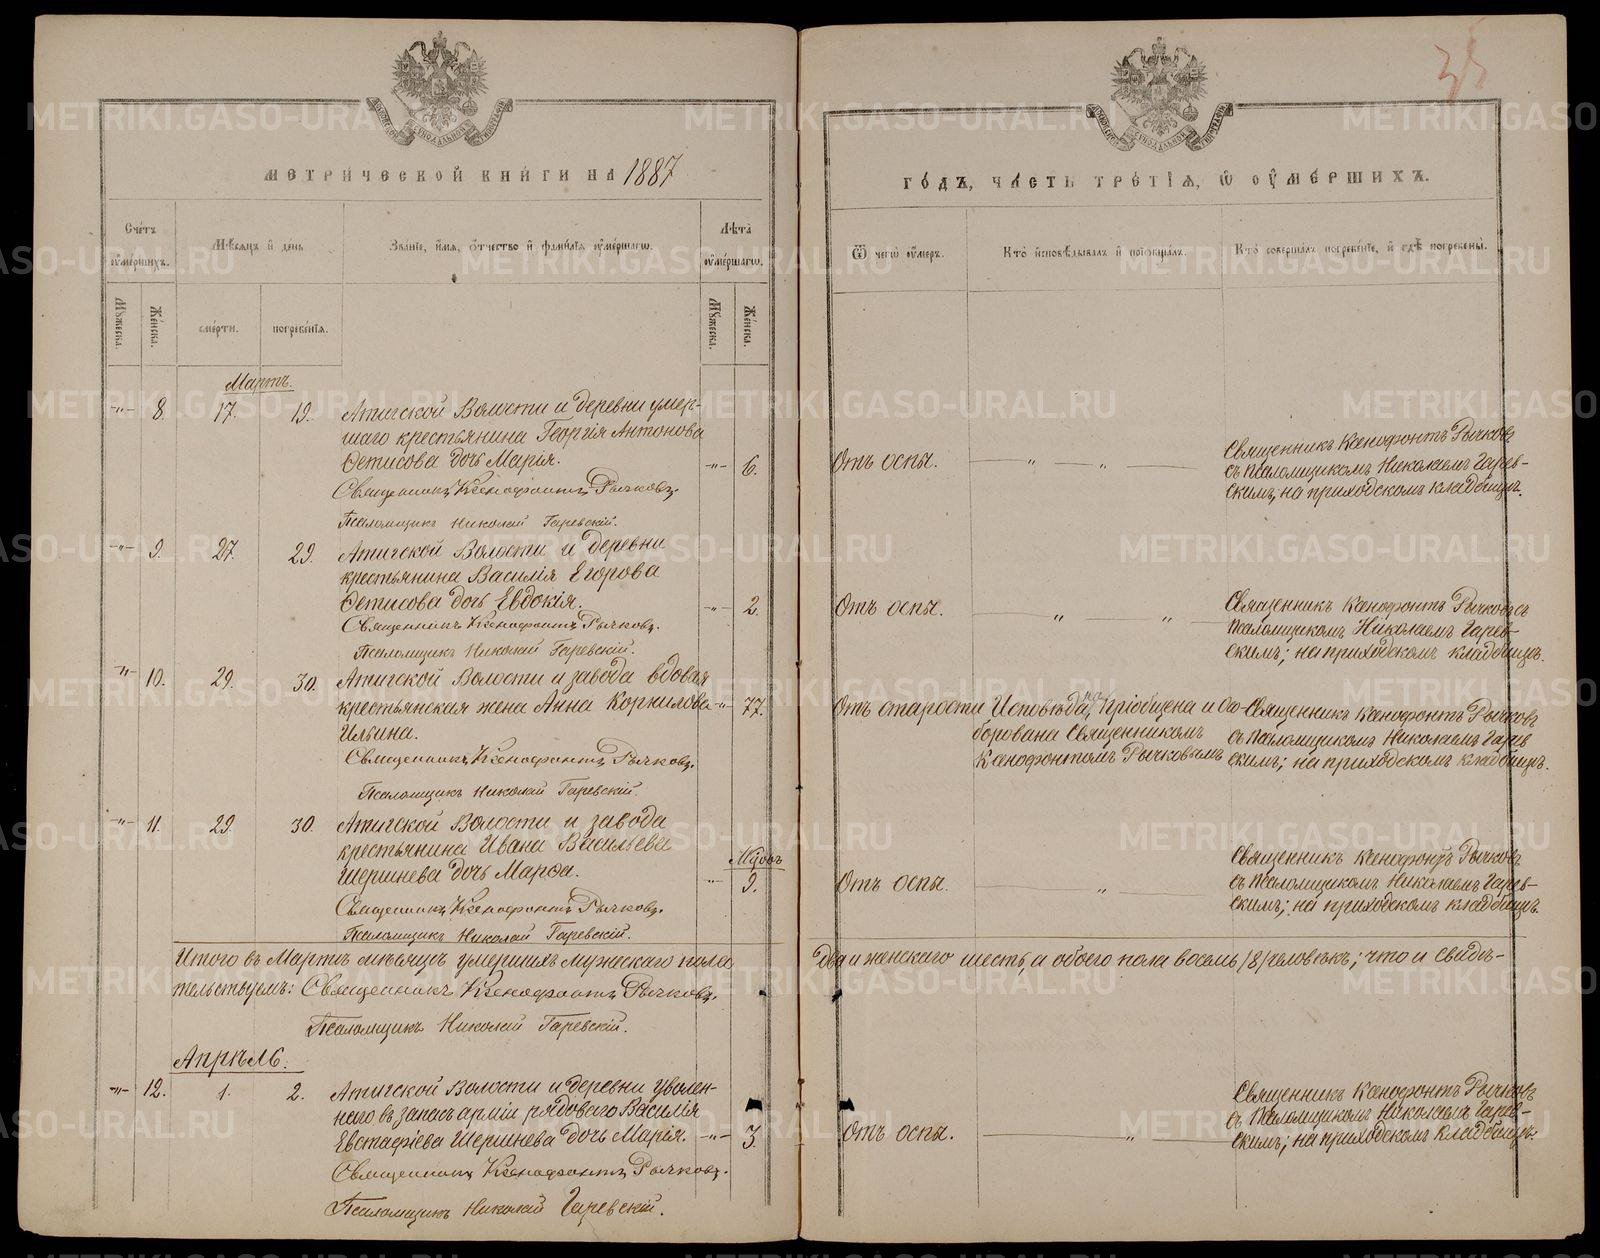 35
МЕТРИЧЕСКОЙ КНИГИ НА 1887
ГОДЪ, ЧАСТЬ ТРЕТІЯ, Ѿ ОУМЕРШИХЪ.
Счетъ оумершихъ.
Мѣсяцъ и день
Званіе, имя, отчество и фамилія оумершагѡ.
Лѣта оумершагѡ.
Ѿ чегѡ оумеръ.
Кто исповѣдывалъ и пріобщалъ.
Кто совершалъ погребеніе, и гдѣ погребены.
Мужеска.
Женска.
смерти.
погребенія.
Мужеска.
Женска.
Мартъ.
-"- 8. 17. 19. Атигской Волости и деревни умер-
шаго крестьянина Георгія Антонова
Ѳетисова дочь Марія. -"- 6.
Священникъ Ксенофонтъ Рычковъ.
Псаломщикъ Николай Гаревскій.
Отъ оспы. " "
Священникъ Ксенофонтъ Рычковъ
съ псаломщикомъ Николаемъ Гарев-
скимъ; на приходскомъ кладбищѣ.
-"- 9. 27. 29. Атигской Волости и деревни
крестьянина Василія Егорова
Ѳетисова дочь Евдокія. -"- 2.
Священникъ Ксенофонтъ Рычковъ.
Псаломщикъ Николай Гаревскій.
Отъ оспы. " "
Священникъ Ксенофонтъ Рычковъ съ
псаломщикомъ Николаемъ Гарев-
скимъ; на приходскомъ кладбищѣ.
-"- 10. 29. 30. Атигской Волости и завода вдовая
крестьянская жена Анна Корнилова -"- 77.
Ильина.
Священникъ Ксенофонтъ Рычковъ.
Псаломщикъ Николай Гаревскій.
Отъ старости
Исповѣдана, пріобщена и со-
борована Священникомъ
Ксенофонтомъ Рычковымъ
Священникъ Ксенофонтъ Рычковъ
съ псаломщикомъ Николаемъ Гарев
скимъ; на приходскомъ кладбищѣ.
-"- 11. 29. 30. Атигской Волости и завода
крестьянина Ивана Васильева
Шершнева дочь Марѳа. Мѣсяцъ
-"- 9.
Священникъ Ксенофонтъ Рычковъ.
Псаломщикъ Николай Гаревскій.
Отъ оспы. "
Священникъ Ксенофонтъ Рычковъ
съ псаломщикомъ Николаемъ Гарев-
скимъ; на приходскомъ кладбищѣ.
Итого въ Мартѣ мѣсяцѣ умершихъ мужескаго пола два и женскаго шесть, а обоего пола восемь /8/ человѣкъ; что и свидѣ-
тельствуемъ: Священникъ Ксенофонтъ Рычковъ.
Псаломщикъ Николай Гаревскій.
Апрѣль.
-"- 12. 1. 2. Атигской Волости и деревни уволен-
наго въ запасъ арміи рядоваго Василія
Евстафіева Шершнева дочь Марія. -"- 3
Священникъ Ксенофонтъ Рычковъ.
Псаломщикъ Николай Гаревскій.
Отъ оспы. "
Священникъ Ксенофонтъ Рычковъ
съ псаломщикомъ Николаемъ Гарев-
скимъ; на приходскомъ кладбищѣ.
METRIKI.GASO-URAL.RU